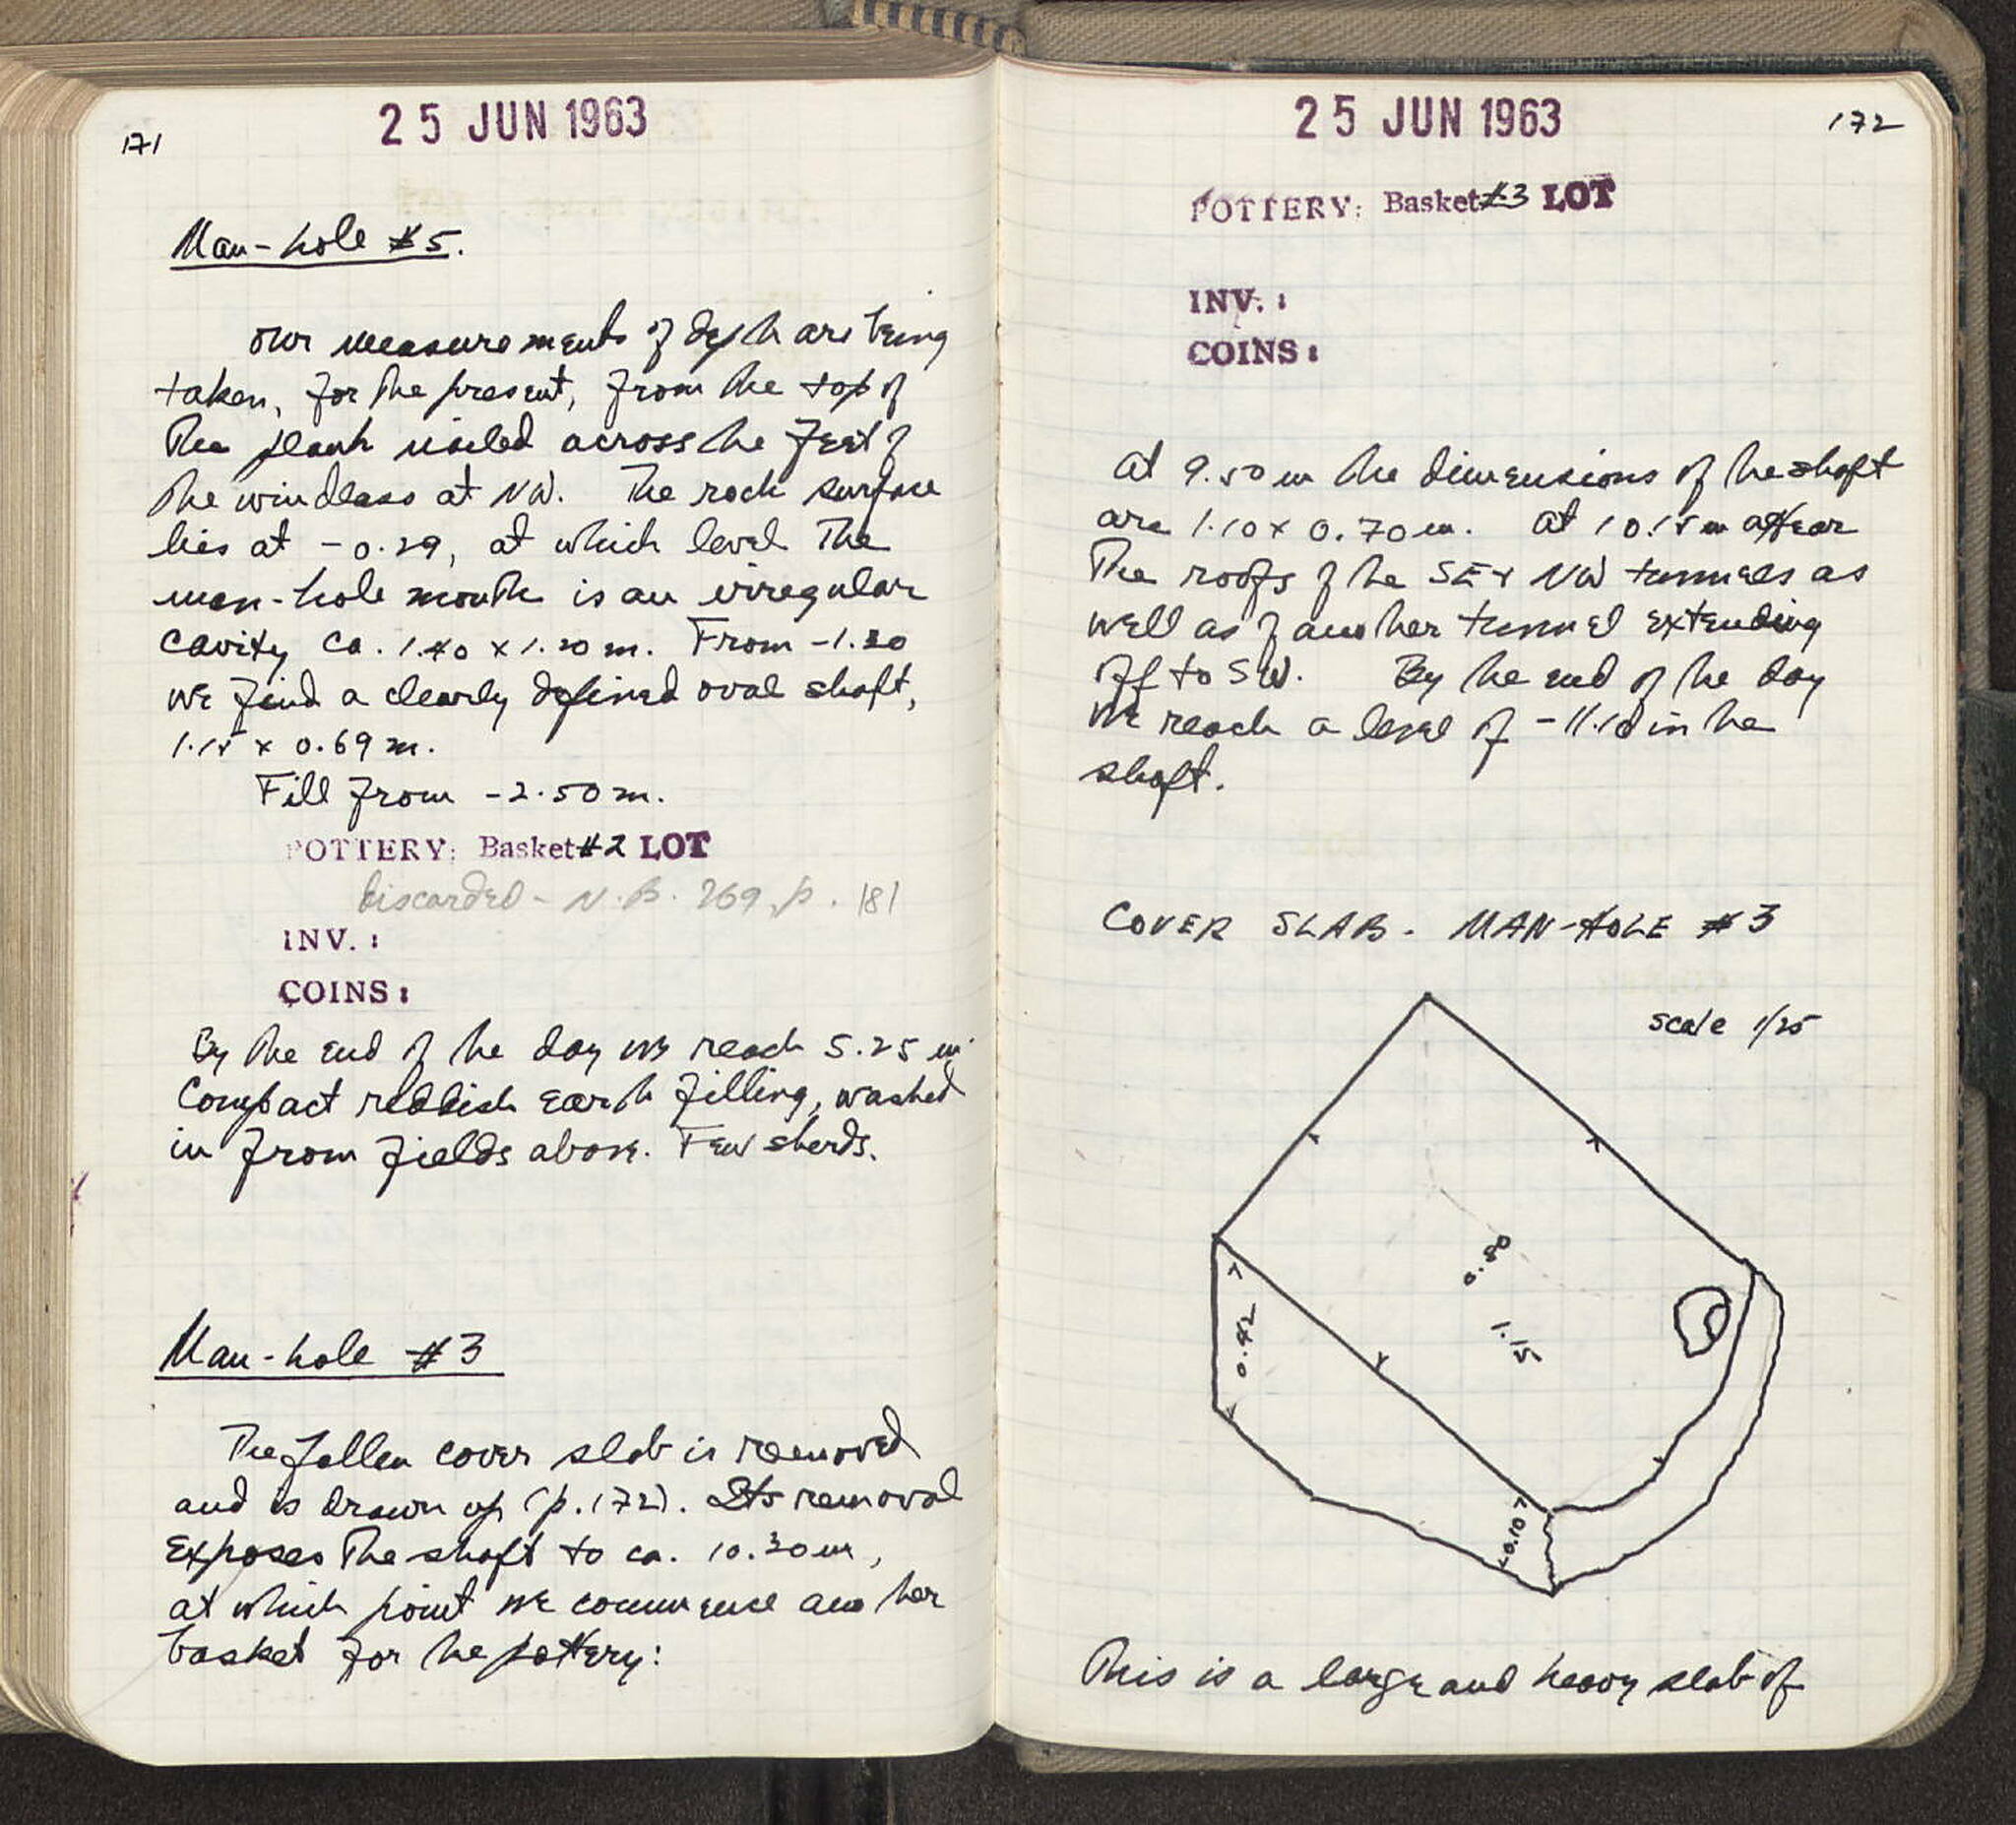 171
25 JUN 1963
Man-hole #5.
Our measurements of depth are being
taken, for the present, from the top of
the plank nailed across the feet of
the windlass at NW. The rock surface
lies at -0.29, at which level the
man-hole mouth is an irregular
cavity ca. 1.40 x 1.20 m. From -1.30
we find a clearly defined oval shaft,
1.15 x 0.69 m.
Fill from -2.50 m.
POTTERY: Basket #2 LOT
discarded - N.B. 269, p. 181
INV. :
COINS :
By the end of the day we reach 5.25 m.
Compact reddish earth filling, washed
in from fields above. Few sherds.
Man-hole #3
The fallen cover slab is removed
and is drawn up (p. 172). Its removal
exposes the shaft to ca. 10.30 m,
at which point we commence another
basket for the pottery:
25 JUN 1963
172
POTTERY: Basket #3 LOT
INV. :
COINS :
At 9.50 m the dimensions of the shaft
are 1.10 x 0.70 m. At 10.15 m appear
the roofs of the SE + NW tunnels as
well as of another tunnel extending
off to SW. By the end of the day
we reach a level of -11.10 in the
shaft.
COVER SLAB. MAN-HOLE #3
scale 1/25
0.80
1.15
0.42
0.10
This is a large and heavy slab of